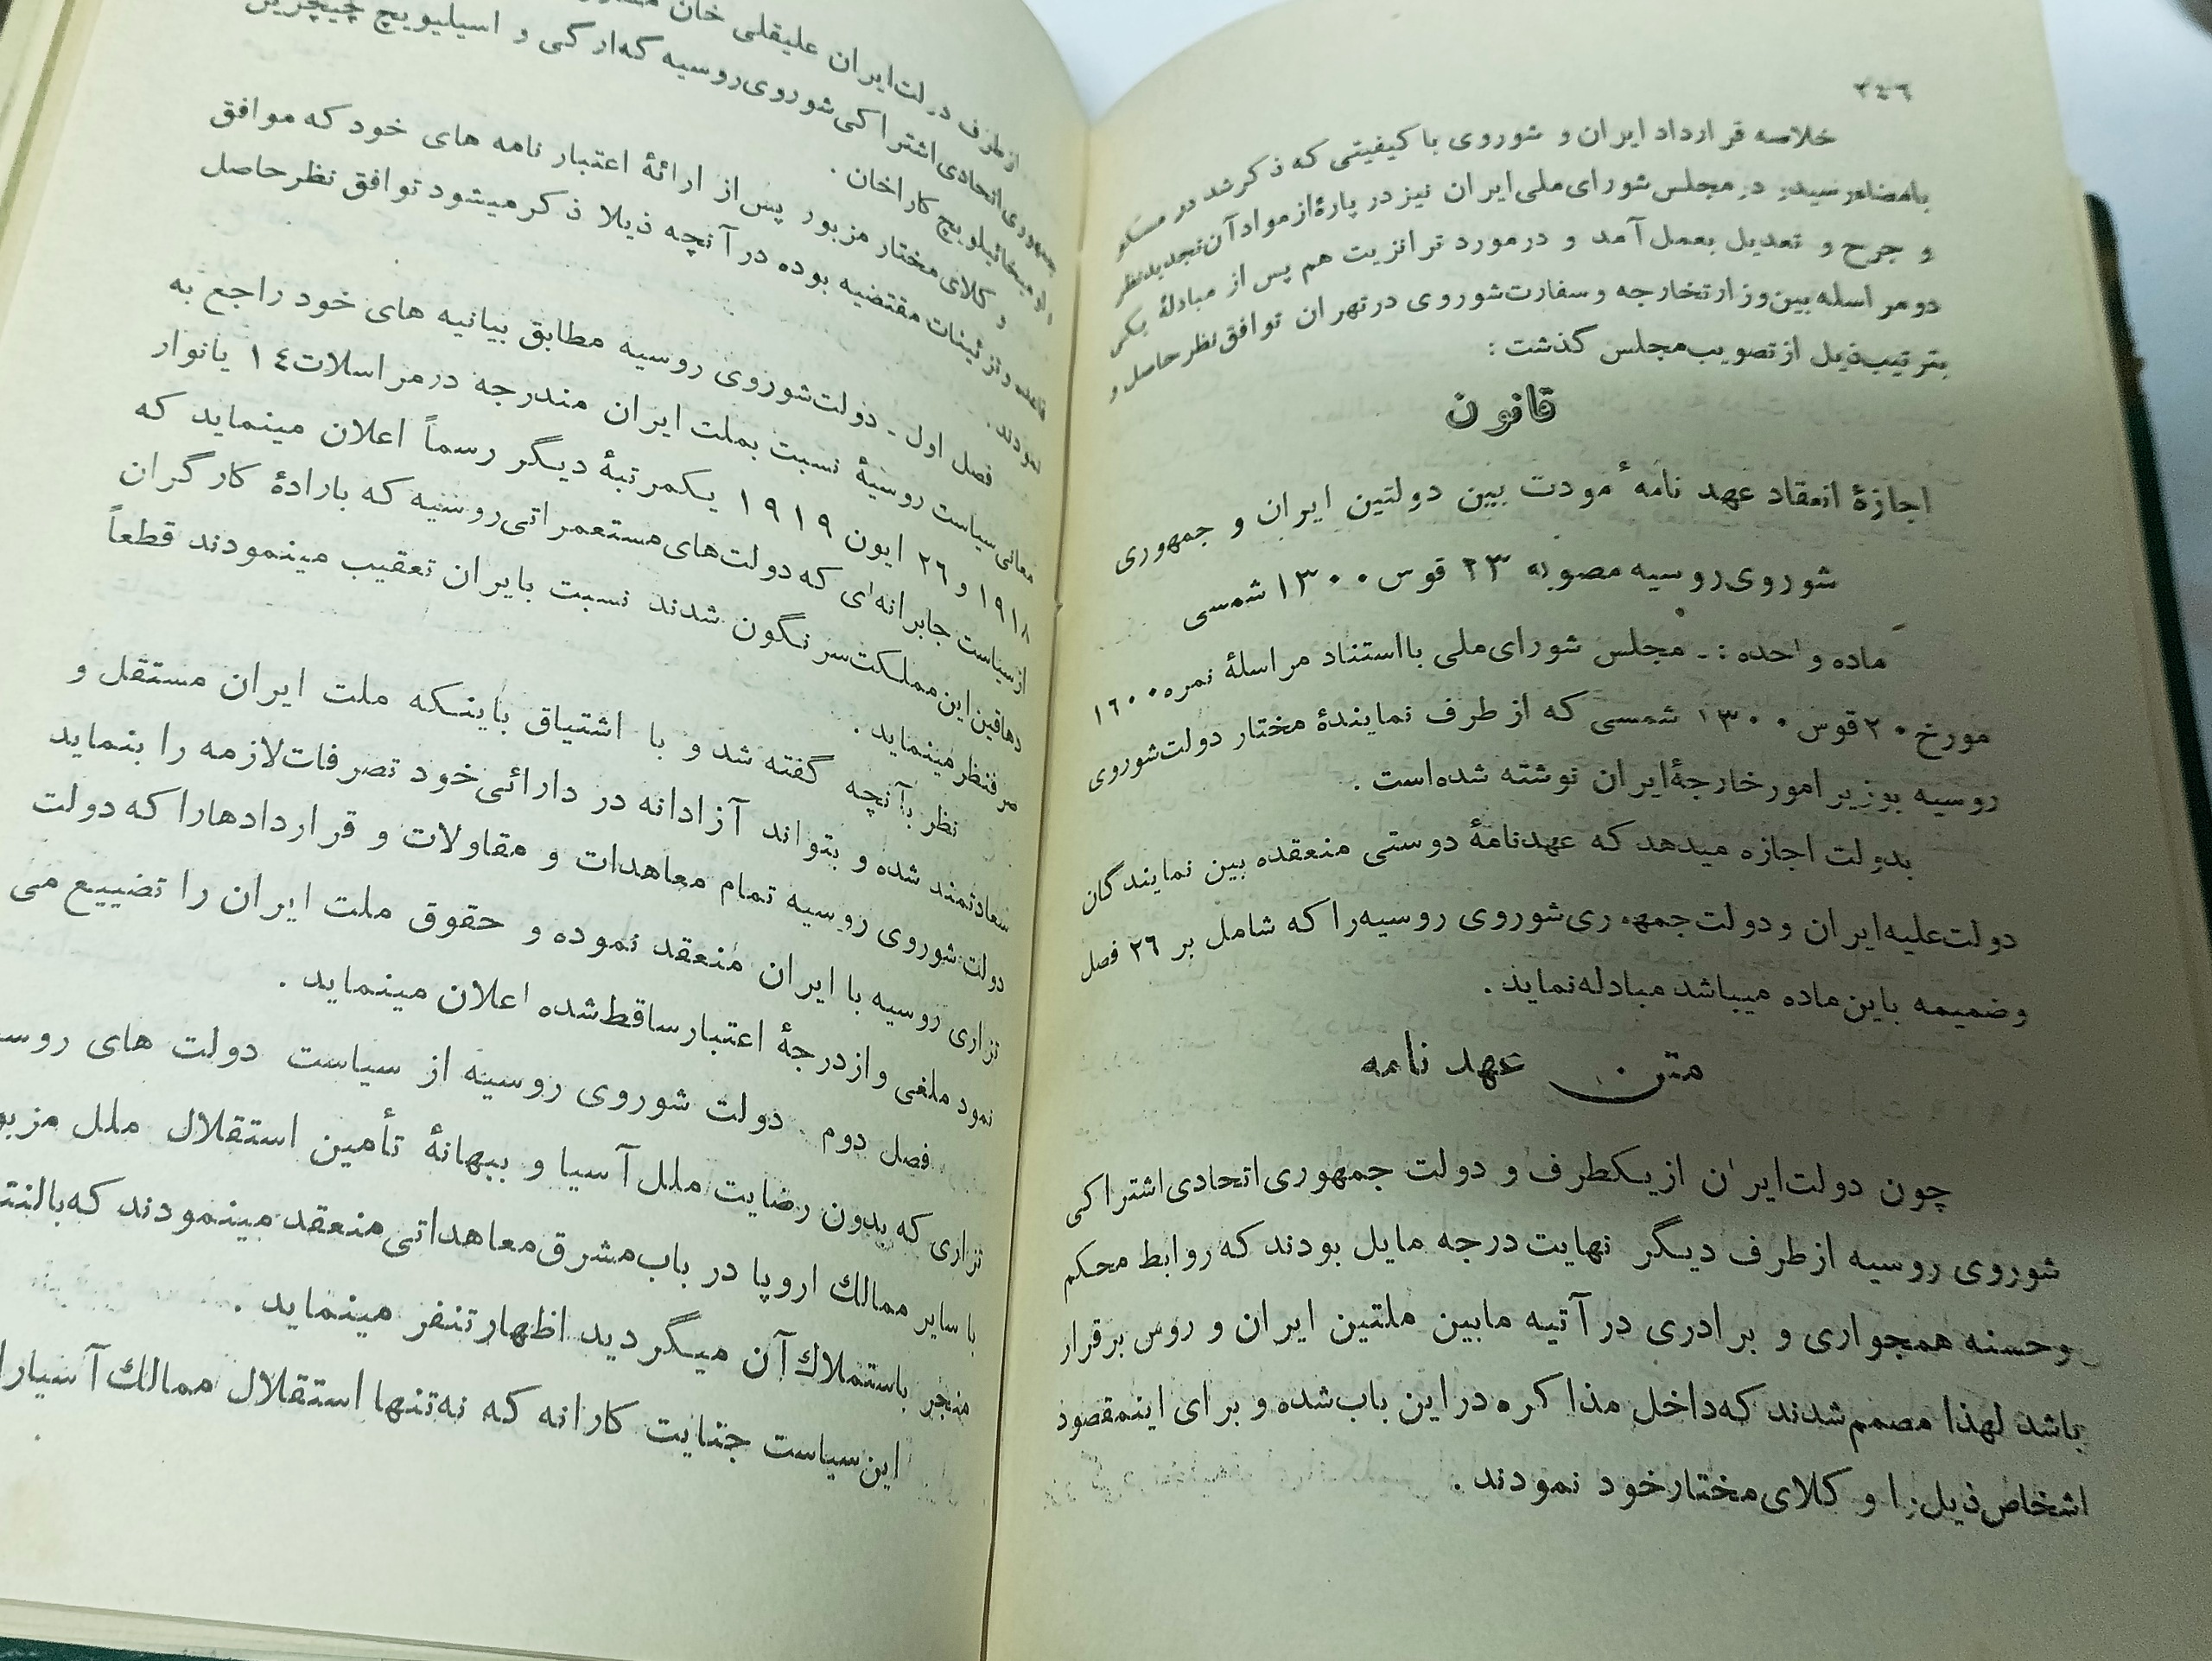 ٢٤٦
خلاصه قرارداد ایران و شوروی با کیفیتی که ذکر شد در مسکو
بامضاء رسید، در مجلس شورای ملی ایران نیز در پارهٔ از مواد آن تجدید نظر
و جرح و تعدیل بعمل آمد و در مورد ترانزیت هم پس از مبادلهٔ یکی
دو مراسله بین وزارتخارجه و سفارت شوروی در تهران توافق نظر حاصل و
بترتیب ذیل از تصویب مجلس گذشت :
قانون
اجازهٔ انعقاد عهد نامهٔ مودت بین دولتین ایران و جمهوری
شوروی روسیه مصوبه ٢٣ قوس ١٣٠٠ شمسی
ماده واحده :ـ مجلس شورای ملی با استناد مراسلهٔ نمره ١٦٠٠
مورخ ٢٠ قوس ١٣٠٠ شمسی که از طرف نمایندهٔ مختار دولت شوروی
روسیه بوزیر امور خارجهٔ ایران نوشته شده است .
بدولت اجازه میدهد که عهدنامهٔ دوستی منعقده بین نمایندگان
دولت علیه ایران و دولت جمهوری شوروی روسیه را که شامل بر ٢٦ فصل
و ضمیمه باین ماده میباشد مبادله نماید .
متن عهد نامه
چون دولت ایران از یکطرف و دولت جمهوری اتحادی اشتراکی
شوروی روسیه از طرف دیگر نهایت درجه مایل بودند که روابط محکم
و حسنه همجواری و برادری در آتیه مابین ملتین ایران و روس برقرار
باشد لهذا مصمم شدند که داخل مذاکره در این باب شده و برای اینمقصود
اشخاص ذیل را وکلای مختار خود نمودند .
از طرف دولت ایران علیقلی خان
جمهوری اتحادی اشتراکی شوروی روسیه که ارکی و اسیلیویچ چیچرین
و لو میخائیلویچ کاراخان .
وکلای مختار مزبور پس از ارائهٔ اعتبار نامه های خود که موافق
قاعده و تزئینات مقتضیه بوده در آنچه ذیلا ذکر میشود توافق نظر حاصل
نمودند .
فصل اول ـ دولت شوروی روسیه مطابق بیانیه های خود راجع به
معانی سیاست روسیهٔ نسبت بملت ایران مندرجه در مراسلات ١٤ یانوار
١٩١٨ و ٢٦ ایون ١٩١٩ یکمرتبهٔ دیگر رسماً اعلان مینماید که
از سیاست جابرانه‌ای که دولت‌های مستعمراتی روسیه که بارادهٔ کارگران
دهاقین این مملکت سرنگون شدند نسبت بایران تعقیب مینمودند قطعاً
صرفنظر مینماید .
نظر بآنچه گفته شد و با اشتیاق باینکه ملت ایران مستقل و
سعادتمند شده و بتواند آزادانه در دارائی خود تصرفات لازمه را بنماید
دولت شوروی روسیه تمام معاهدات و مقاولات و قراردادهارا که دولت
تزاری روسیه با ایران منعقد نموده و حقوق ملت ایران را تضییع می
نمود ملغی و از درجهٔ اعتبار ساقط شده اعلان مینماید .
فصل دوم . دولت شوروی روسیه از سیاست دولت های
تزاری که بدون رضایت ملل آسیا و ببهانهٔ تأمین استقلال ملل
با سایر ممالك اروپا در باب مشرق معاهداتی منعقد مینمودند
منجر باستملاك آن میگردید اظهار تنفر مینماید .
این سیاست جنایت کارانه که نه تنها استقلال ممالك آسیارا